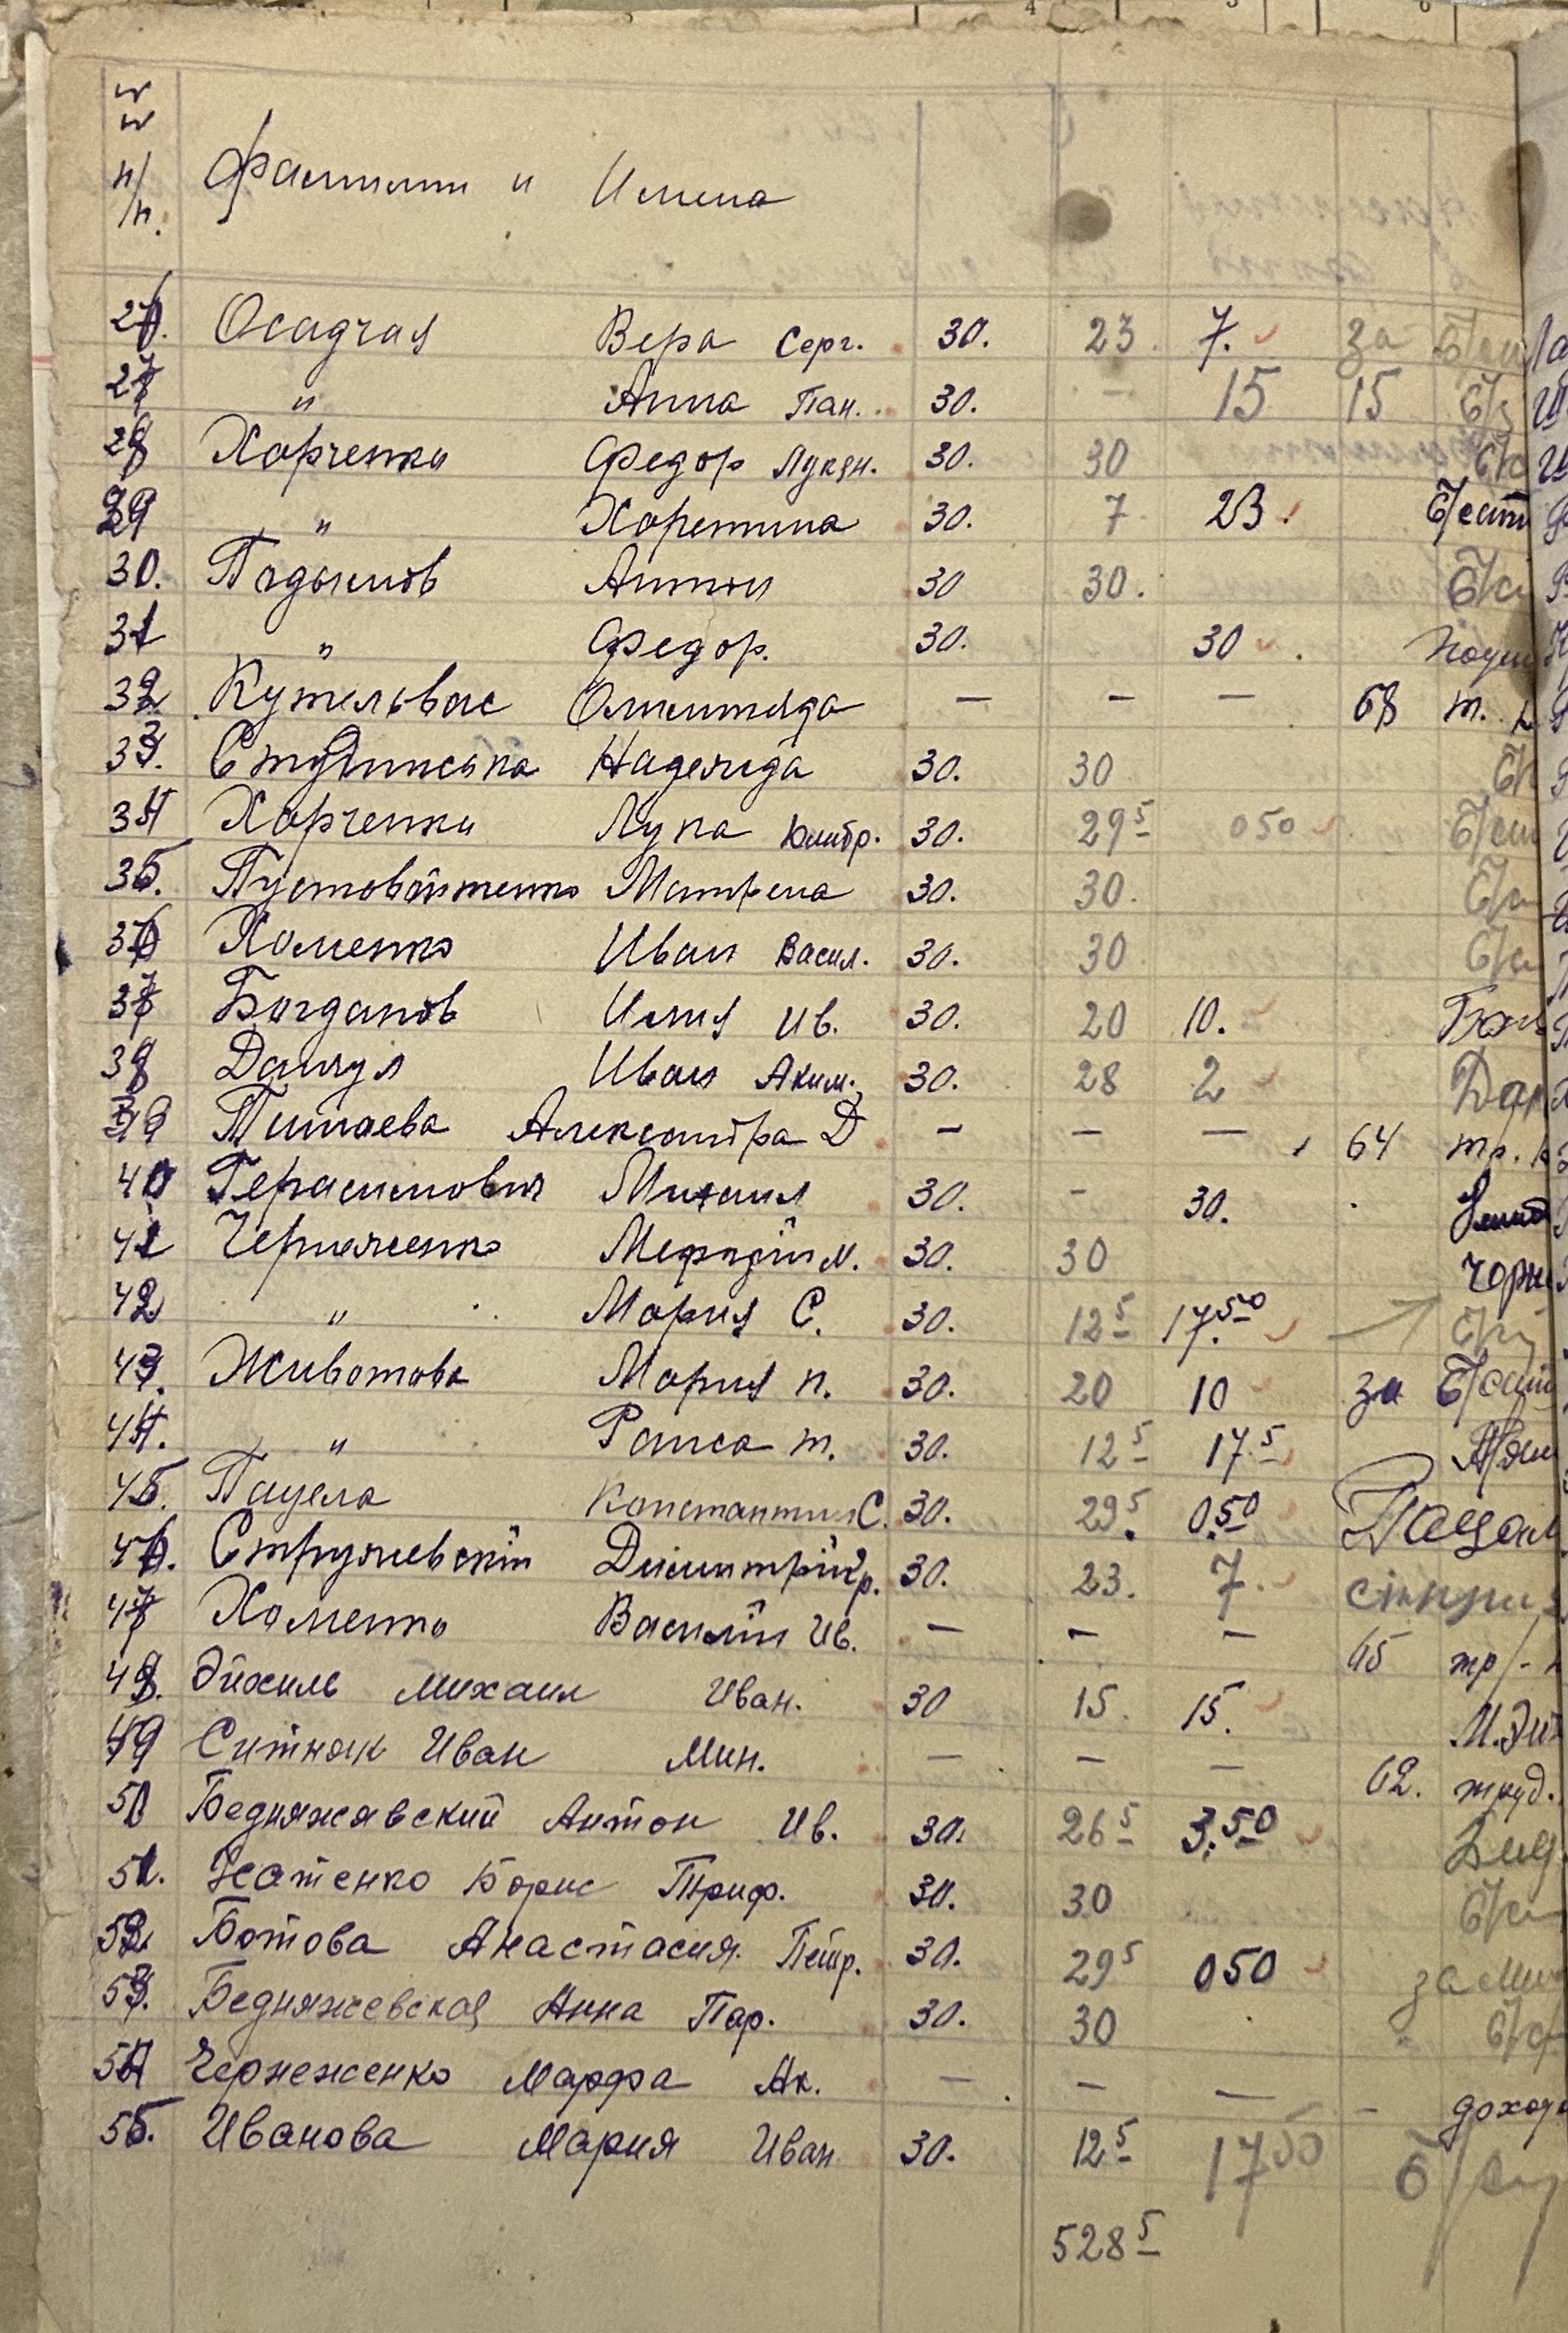 №№ п/п. Фамилии и Имена
26. Осадчая Вера Серг. 30. 23. 7. за
27 " Анна Пан. 30. – 15 15
28 Харченко Федор Лукян. 30. 30
29 " Харетина 30. 7. 23.
30. Падымов Антон 30 30.
31 " Федор. 30. 30
32. – – – 68 т.
33. Надежда 30. 30
34 Харченко Лука Дмитр. 30. 29 5 0 50
35. Пустовойтенко Матрена 30. 30.
36 Хоменко Иван Васил. 30. 30
37 Богданов Илия Ив. 30. 20 10.
38 Иван Аким. 30. 28 2
39 Титаева Александра Д – – – 64 тр.
40 Герасимович Михаил 30. – 30.
41 Черняженко Мефодий М. 30. 30
42 " Мария С. 30. 12 5 17. 50
43. Животова Мария П. 30. 20 10 за
44. " Раиса Т. 30. 12 5 17 5
45. Пацела Константин С. 30. 29 5. 0.50
46. Стружевскій Димитрій 30. 23. 7.
47 Хоменко Василій Ив. – – – 65 тр
48. Эйхиль Михаил Иван. 30 15. 15. М.
49 Ситняк Иван Мин. – – – 62. труд.
50 Бедняжевский Антон Ив. 30. 26 5 3. 50
51. Борис Триф. 30. 30
52. Ботова Анастасия Петр. 30. 29 5 0 50 за
53. Бедняжевская Анна Пар. 30. 30
54 Чернеженко Марфа Ак. – – – –
55. Иванова Мария Иван 30. 12 5 17 50
528 5